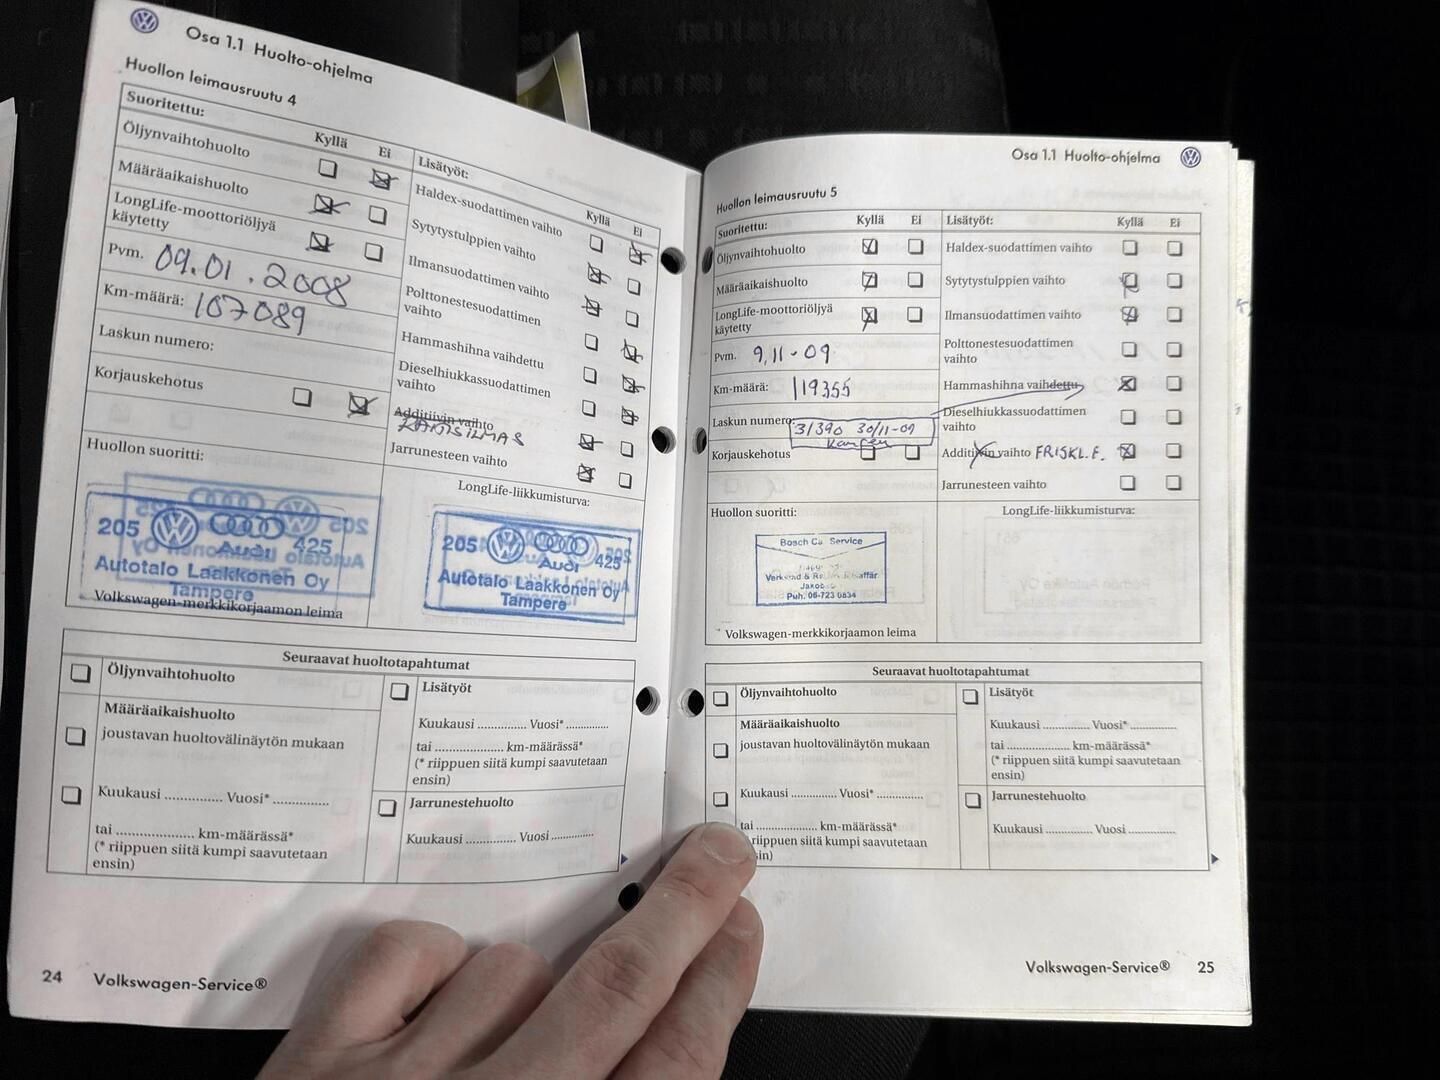 Osa 1.1 Huolto-ohjelma
Huollon leimausruutu 4
Suoritettu:
Kyllä Ei
Öljynvaihtohuolto
Määräaikaishuolto
LongLife-moottoriöljyä
käytetty
Pvm. 09.01.2008
Km-määrä: 107089
Laskun numero:
Korjauskehotus
Lisätyöt:
Kyllä Ei
Haldex-suodattimen vaihto
Sytytystulppien vaihto
Ilmansuodattimen vaihto
Polttonestesuodattimen
vaihto
Hammashihna vaihdettu
Dieselhiukkassuodattimen
vaihto
Additiivin vaihto
RAITISILMAS
Jarrunesteen vaihto
Huollon suoritti:
205 Audi 425
Autotalo Laakkonen Oy
Tampere
Volkswagen-merkkikorjaamon leima
LongLife-liikkumisturva:
205 Audi 425
Autotalo Laakkonen Oy
Tampere
Seuraavat huoltotapahtumat
Öljynvaihtohuolto
Määräaikaishuolto
joustavan huoltovälinäytön mukaan
Kuukausi ............... Vuosi* ...............
tai ..................... km-määrässä*
(* riippuen siitä kumpi saavutetaan
ensin)
Lisätyöt
Kuukausi ............. Vuosi* .............
tai .................... km-määrässä*
(* riippuen siitä kumpi saavutetaan
ensin)
Jarrunestehuolto
Kuukausi ............. Vuosi .............
24 Volkswagen-Service®
Osa 1.1 Huolto-ohjelma
Huollon leimausruutu 5
Suoritettu:
Kyllä Ei
Öljynvaihtohuolto
Määräaikaishuolto
LongLife-moottoriöljyä
käytetty
Pvm. 9,11-09
Km-määrä: 119355
Laskun numero:
31390 30/11-09
Korjauskehotus
Lisätyöt:
Kyllä Ei
Haldex-suodattimen vaihto
Sytytystulppien vaihto
Ilmansuodattimen vaihto
Polttonestesuodattimen
vaihto
Hammashihna vaihdettu
Dieselhiukkassuodattimen
vaihto
Additiivin vaihto FRISKL.F.
Jarrunesteen vaihto
Huollon suoritti:
Bosch Car Service
Verkstad &
Puh. 06-723 0834
Volkswagen-merkkikorjaamon leima
LongLife-liikkumisturva:
Seuraavat huoltotapahtumat
Öljynvaihtohuolto
Määräaikaishuolto
joustavan huoltovälinäytön mukaan
Kuukausi ............ Vuosi* ............
tai .................... km-määrässä*
riippuen siitä kumpi saavutetaan
Lisätyöt
Kuukausi ............. Vuosi* ............
tai .................... km-määrässä*
(* riippuen siitä kumpi saavutetaan
ensin)
Jarrunestehuolto
Kuukausi ............. Vuosi .............
Volkswagen-Service® 25